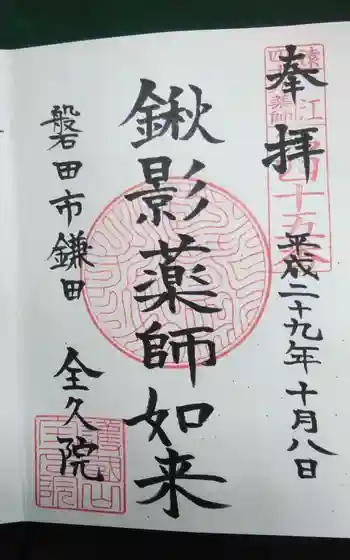 奉拝
平成二十九年十月八日
遠江
四十九薬師
第四十五番
鍬影薬師如来
磐田市鎌田
全久院